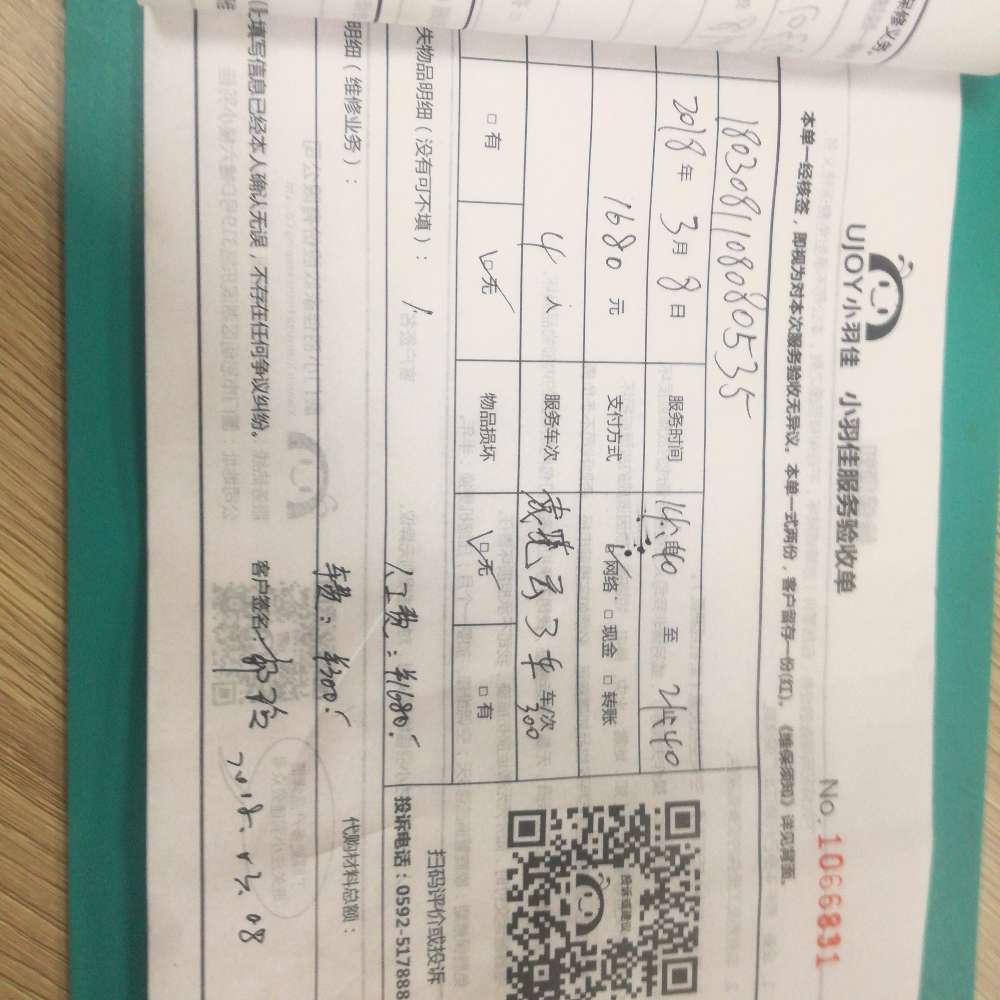 保修义务
UJOY小羽佳 小羽佳服务验收单
No. 1066831
本单一经核签，即视为对本次服务验收无异议。本单一式两份，客户留存一份(红)。《维保须知》详见背面。
1803081108080535
2018年3月8日 服务时间 14:40 至 21:40
1680元 支付方式 ☑网络 □现金 □转账
4人 服务车次 车/次 300
□有 ☑无 物品损坏 ☑无 □有
投诉或建议
扫码评价或投诉
投诉电话：0592-517888
失物品明细（没有可不填）： /
人工费：¥1680.
明细（维修业务）：
车费：¥300.
代购材料总额：
以上填写信息已经本人确认无误，不存在任何争议纠纷。 客户签名
08